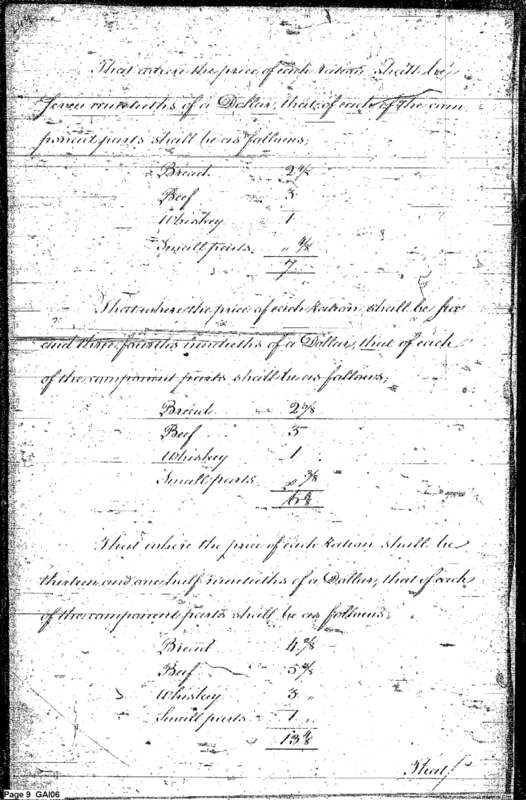 That where the price of each Ration shall be
seven ninetieths of a Dollar, that of each of the com
ponent parts shall be as follows,
Bread 2 4/8
Beef 3
Whiskey 1
Small parts " 4/8
7
That where the price of each Ration shall be six
and three fourths ninetieths of a Dollar, that of each
of the component parts shall be as follows,
Bread 2 3/8
Beef 3
Whiskey 1
Small parts " 3/8
6 6/8
That where the price of each Ration shall be
thirteen and one half ninetieths of a Dollar, that of each
of the component parts shall be as follows
Bread 4 2/8
Beef 5 2/8
Whiskey 3 "
Small parts 1 "
13 4/8
That
Page 9 GAI06